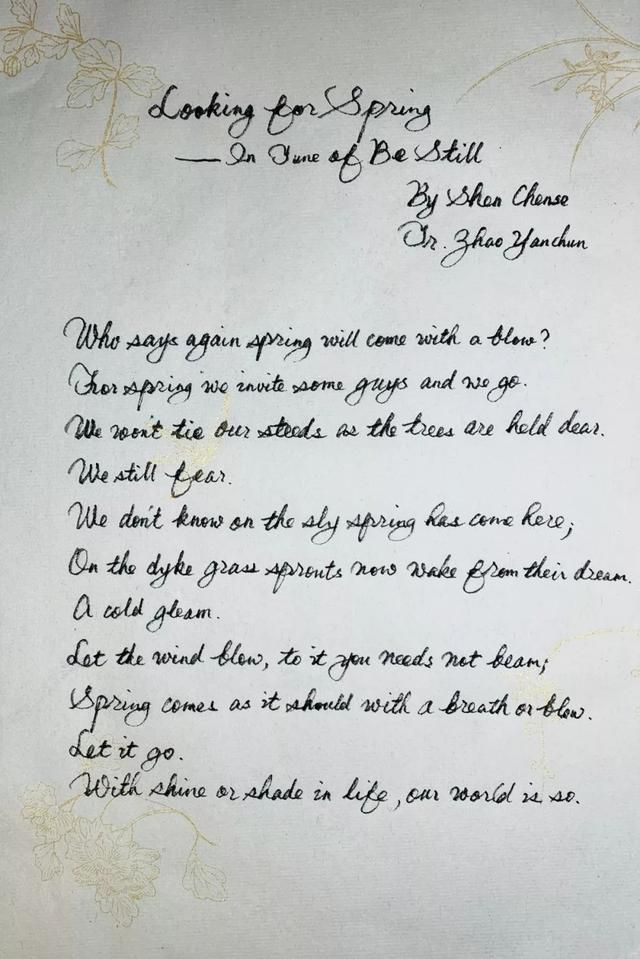 Looking for Spring
— In Tune of Be Still
By Shen Chense
Tr. Zhao Yanchun
Who says again spring will come with a blow?
For spring we invite some guys and we go.
We won't tie our steeds as the trees are held dear.
We still fear.
We don't know on the sly spring has come here;
On the dyke grass sprouts now wake from their dream.
A cold gleam.
Let the wind blow, to it you needs not beam;
Spring comes as it should with a breath or blow.
Let it go.
With shine or shade in life, our world is so.